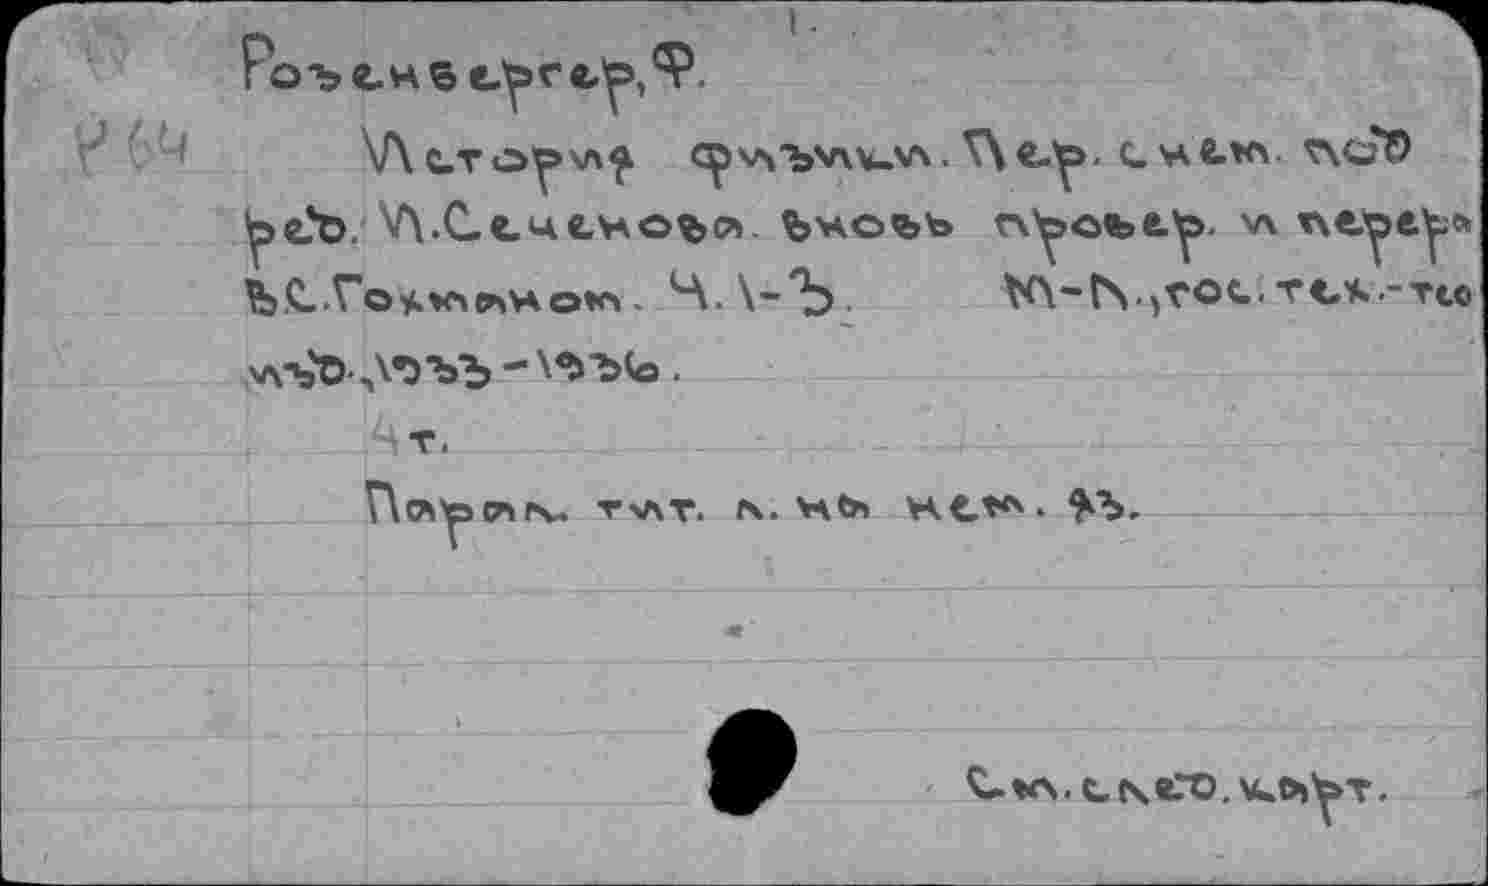 Розенбергер, Ф.
История физики. Пер. с нем. под
ред. И. Сеченова. Вновь провер. и перера
В.С. Гохманом. Ч. 1-3. М-Л., гос. тех.-тео
изд., 1933-1936.
4 т.
Парал. тит. л. на нем. яз.
См. след. карт.